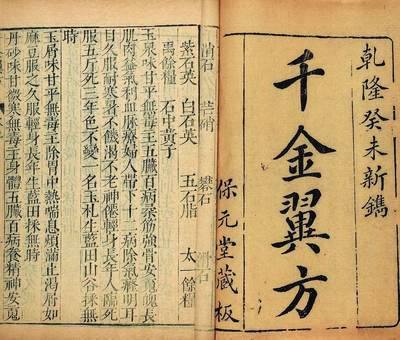 乾隆癸未新鐫
千金翼方
保元堂藏板
消石 芒硝 礬石 滑石
紫石英 白石英 五石脂 太一餘糧
禹餘糧 石中黃子
玉泉味甘平無毒主五臟百病柔筋強骨安魂魄長
肌肉益氣利血脈療婦人帶下十二病除氣癃明耳
目久服耐寒暑不饑渴不老神僊輕身長年人臨死
服五斤死三年色不變一名玉札生藍田山谷採無
時
玉屑味甘平無毒主除胃中熱喘息煩滿止渴屑如
麻豆服之久服輕身長年生藍田採無時
丹砂味甘微寒無毒主身體五臟百病養精神安魂